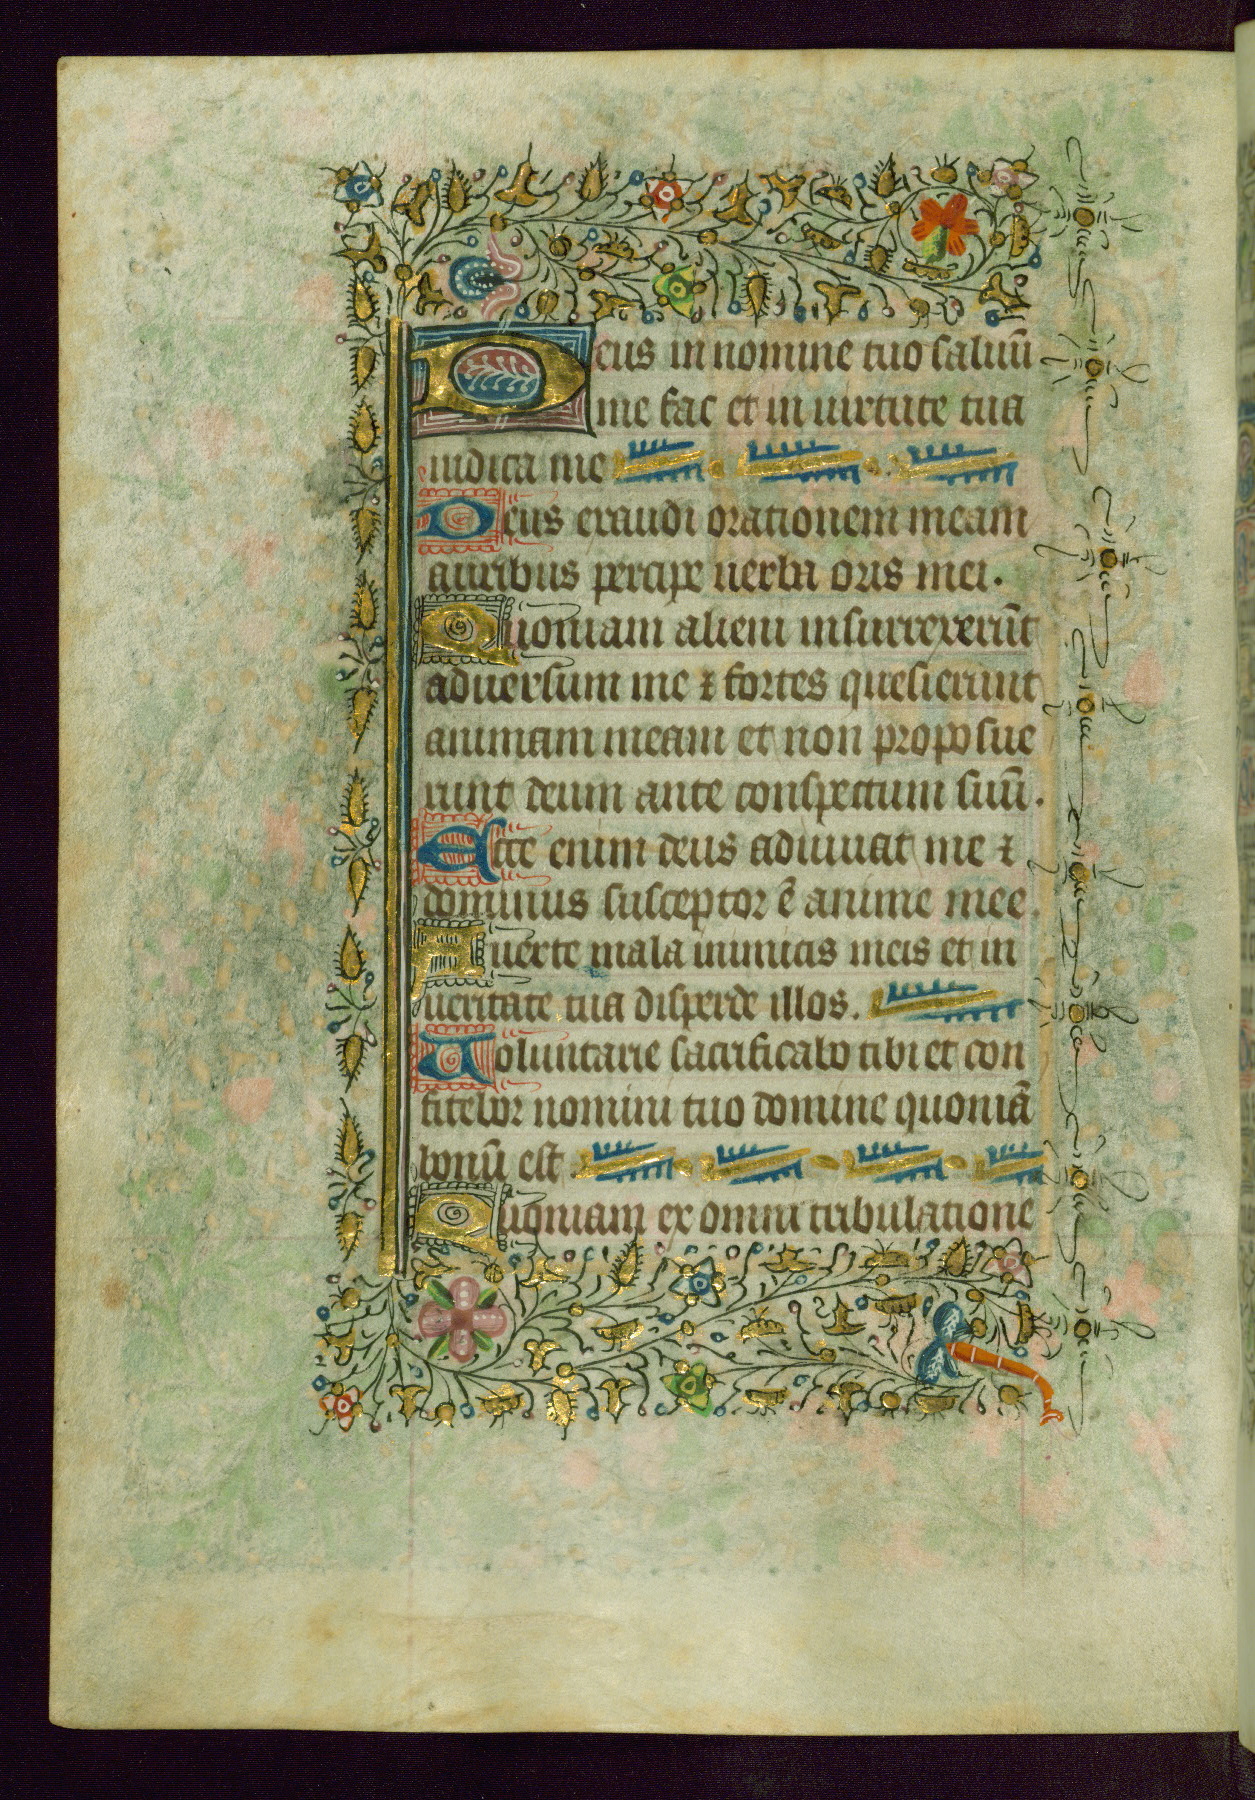 Deus in nomine tuo saluū
me fac et in uirtute tua
iudica me
Deus exaudi orationem meam
auribus percipe uerba oris mei.
Quoniam alieni insurrexerūt
aduersum me ⁊ fortes quesierunt
animam meam et non proposue
runt deum ante conspectum suū.
Ecce enim deus adiuuat me ⁊
dominus susceptor ē anime mee.
Auerte mala inimicis meis et in
ueritate tua disperde illos.
Uoluntarie sacrificabo tibi et con
fitebor nomini tuo domine quoniā
bonū est
Quoniam ex omni tribulatione